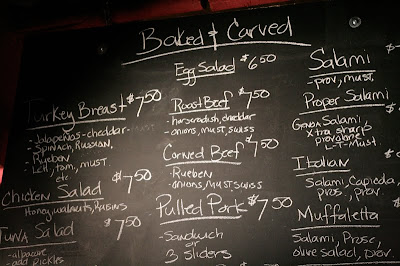 Baked & Carved
Egg Salad $6.50
Turkey Breast $7.50
- Jalapeños - cheddar
- Spinach, Russian,
- Rueben
- Let, tom, must.
etc
Chicken Salad $7.50
Honey, walnuts, Raisins
Tuna Salad $7.50
- albacore
- add pickles
Roast Beef $7.50
- horseradish, cheddar
- onions, must, swiss
Carved Beef $7.50
- Rueben
- onions, must, swiss
Pulled Pork $7.50
- Sandwich
or
3 sliders
Salami
- prov, must.
Proper Salami
Genoa Salami
Xtra sharp
provolone
L-T-Must
Italian
Salami, Capicda,
Pros, prov,
Muffaletta
Salami, Prosc,
olive salad, prov.